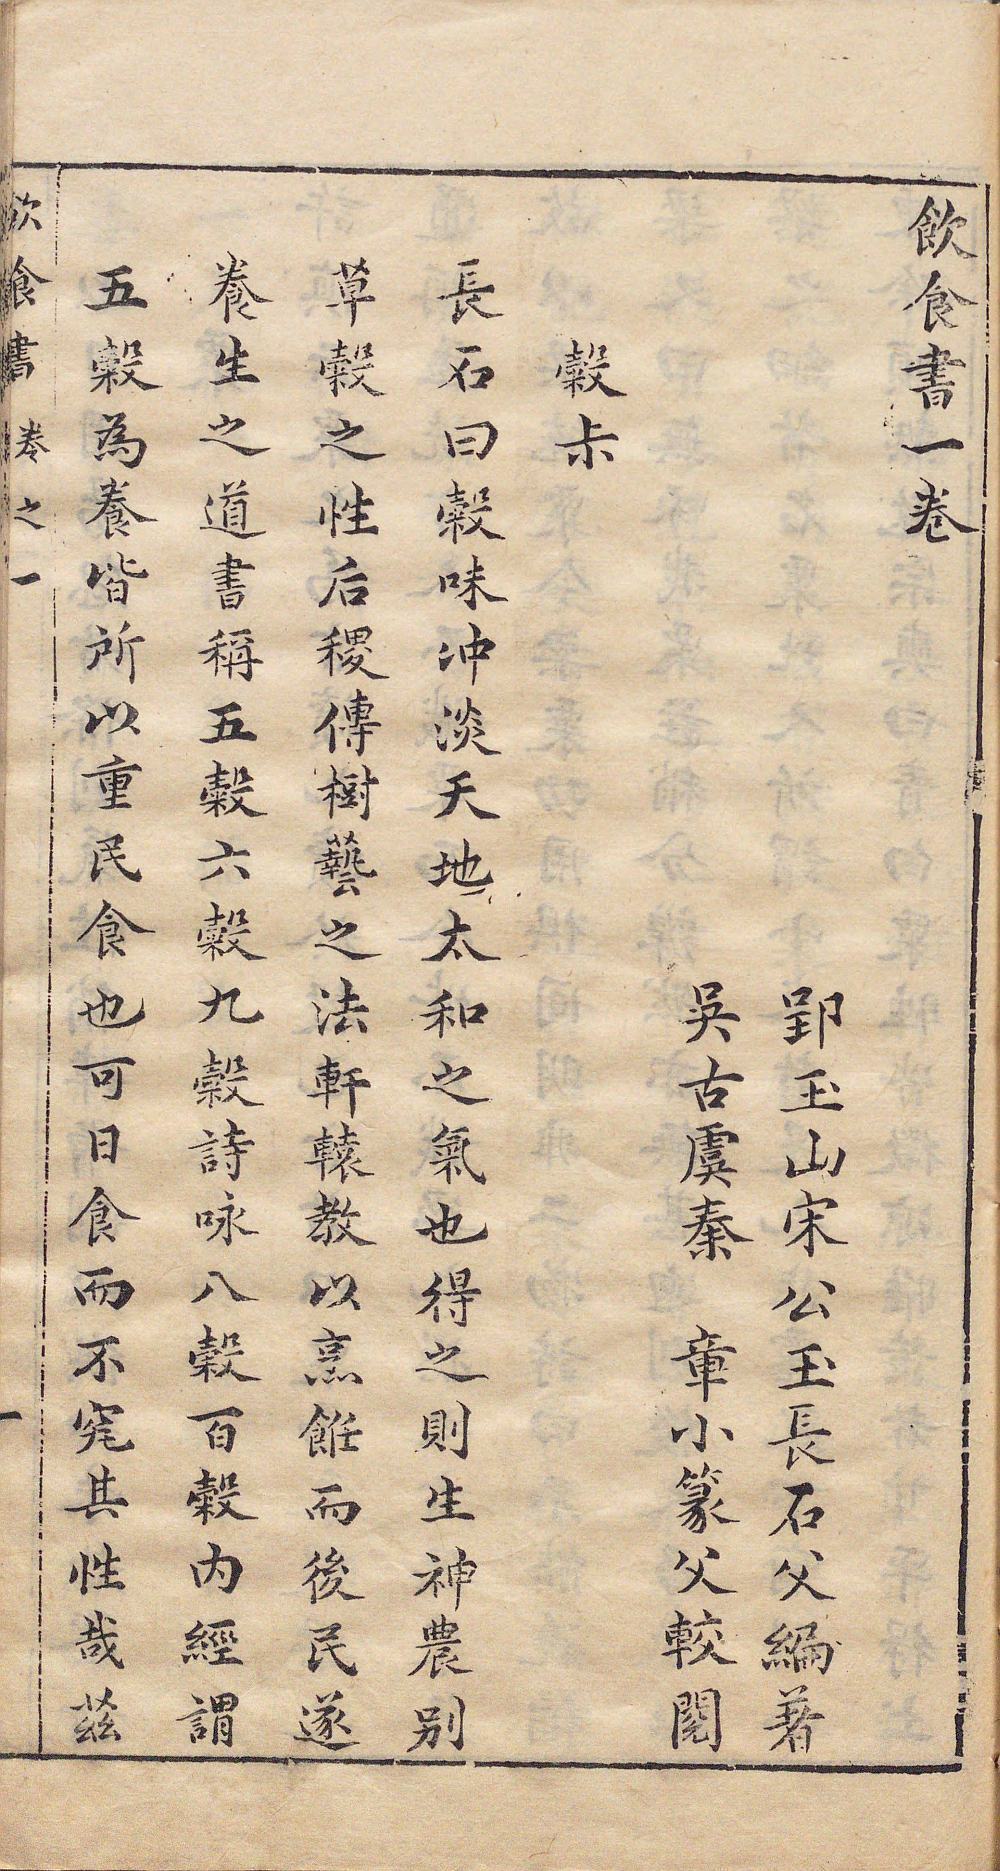 飲食書一卷
郢玉山宋公玉長石父編著
吳古虞秦　章小篆父較閱
穀尗
長石曰穀味冲淡天地太和之氣也得之則生神農別
草穀之性后稷傳樹藝之法軒轅教以烹飪而後民遂
養生之道書稱五穀六穀九穀詩咏八穀百穀內經謂
五穀為養皆所以重民食也可日食而不究其性哉茲
飲食書 卷之一 一